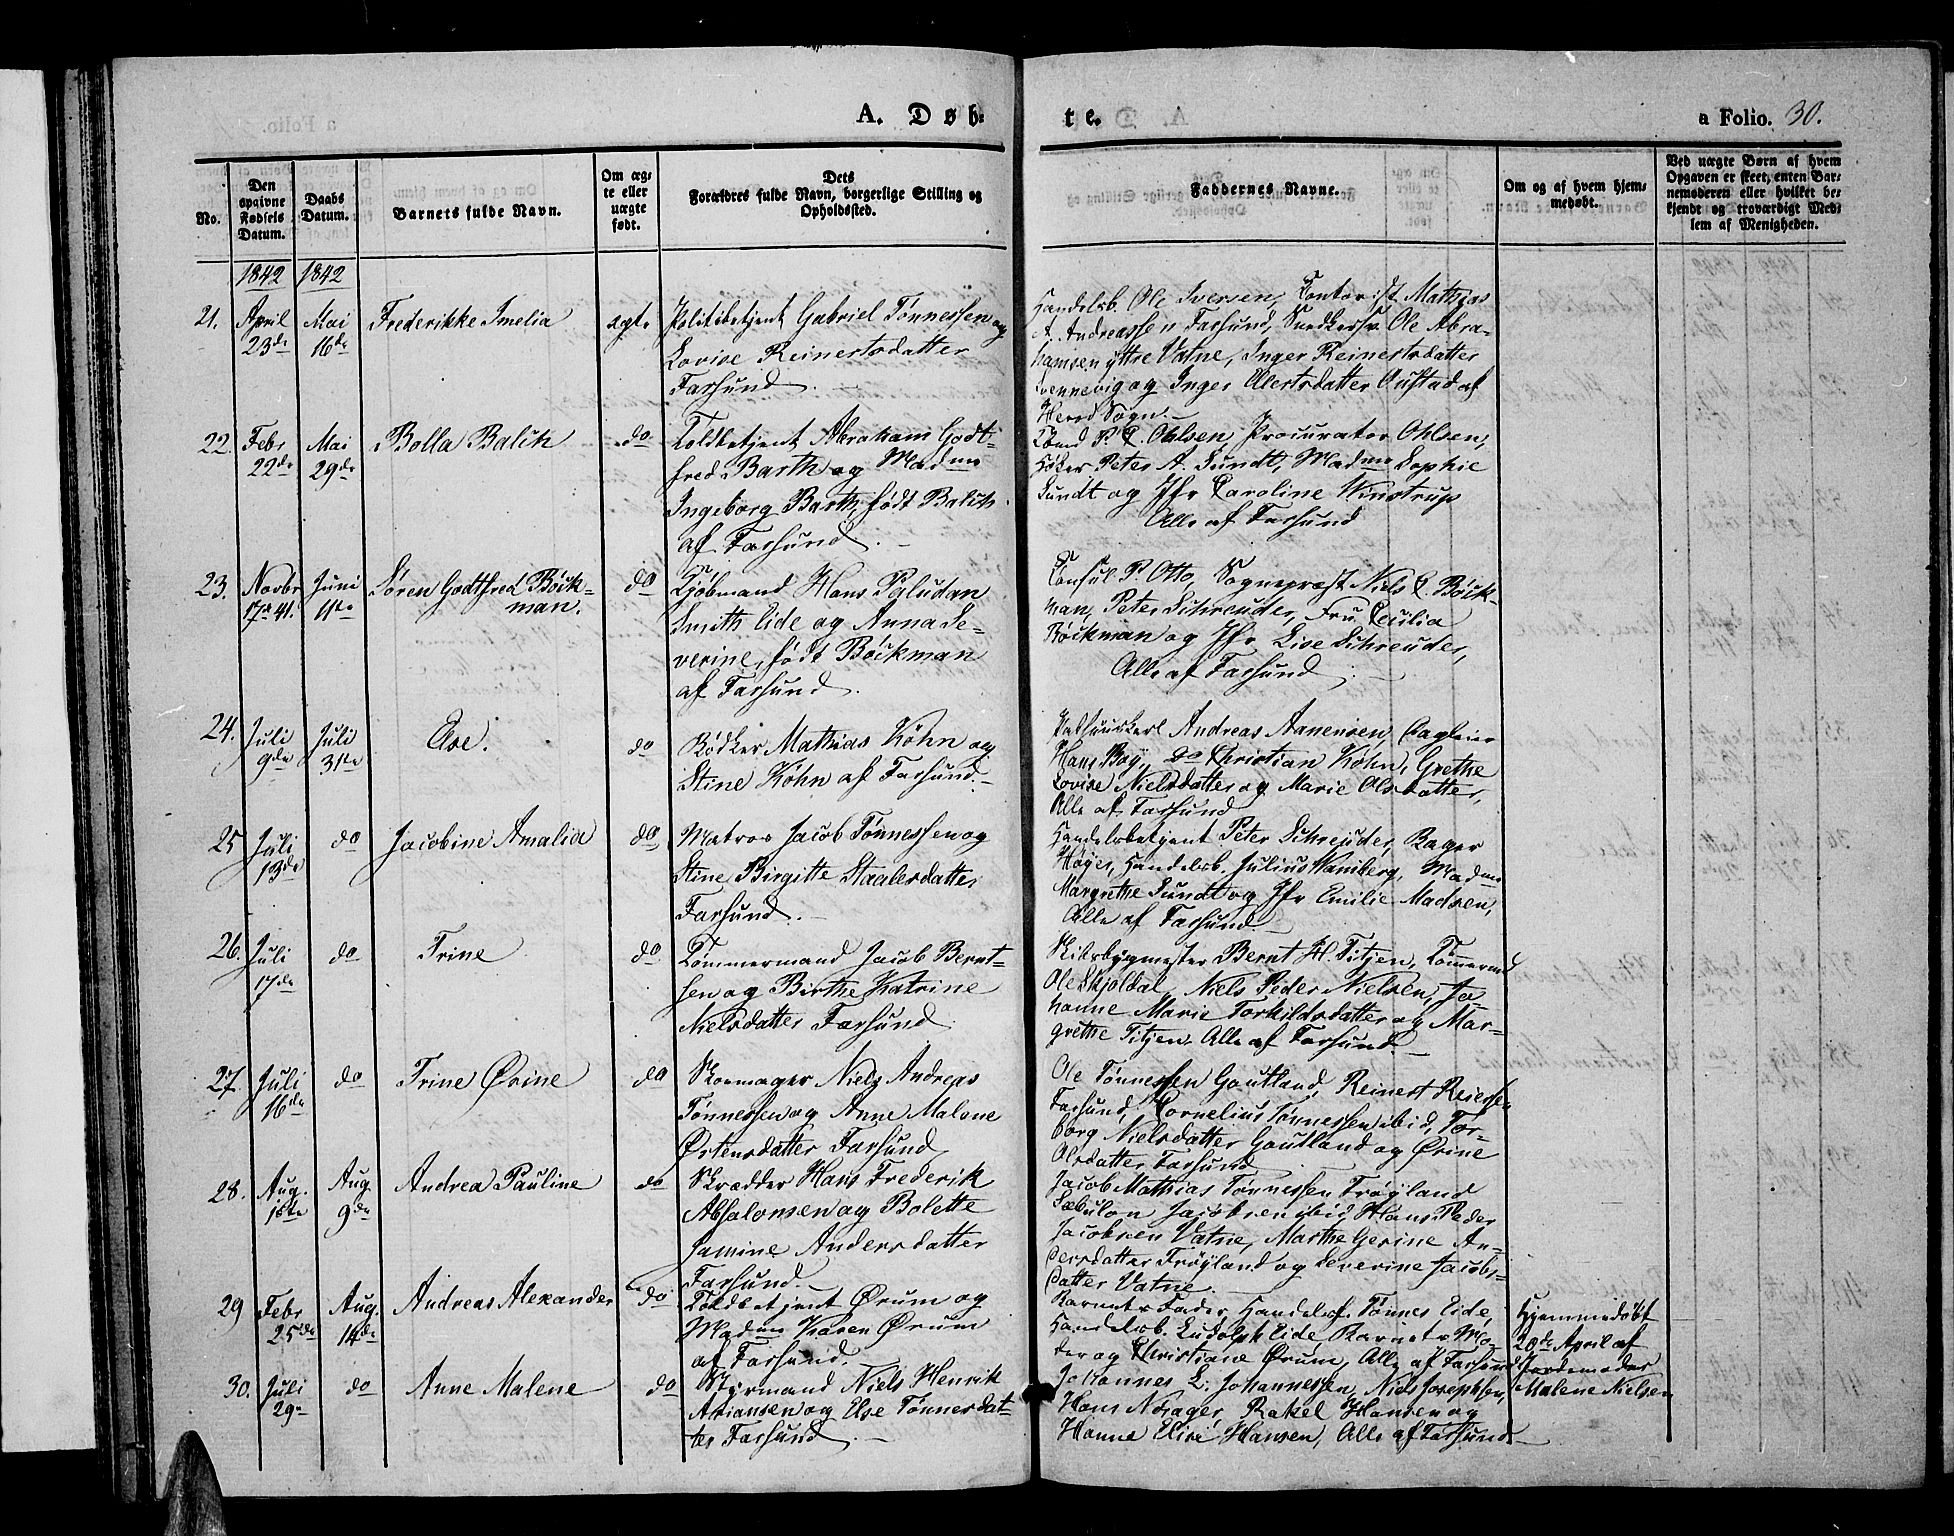 A. Døb-
te.
a Folio. 30.
No.
Den
opgivne
Fødsels
Datum.
Daabs
Datum.
Barnets fulde Navn.
Om æg-
te eller
uægte
født.
Dets
Forældres fulde Navn, borgerlige Stilling og
Opholdssted.
Faddernes Navne.
Om og af hvem hjem-
medøbt.
Ved uægte Børn af hvem
Opgaven er skeet, enten Bar-
nemoderen eller hvilket be-
kjendt og troværdigt Med-
lem af Menigheden.
1842 1842
21. April 23de
Mai 16de
Frederikke Imelia
ægte
Politibetjent Gabriel Tønnessen og
Lovise Reinertsdatter
Farsund.
Handelsb. Ole Iversen, Contorist Mathias
A. Andreassen Farsund, Snedkersv. Ole Abra-
hamsen yttre Vatne, Inger Reinertsdatter
Svennevig og Inger Elertsdatter Oustad af
Herred Sogn.
22. Febr 22de
Mai 29de
Bolla Balich
do
Toldbetjent Abraham Godt-
fred Barth og Madme
Ingeborg Barth, født Balich
af Farsund.
P. C. Ohlsen, Procurator Ohlsen,
Høker Peter A. Sundt, Madme Sophie
Sundt og Jfr Caroline Winstrup
Alle af Farsund
23. Novbr 17de 41.
Juni 11te
Søren Godtfred Böck-
man.
do
Kjøbmand Hans Paludan
Smith Eide og Anna Se-
verine, født Böckman
af Farsund.
Consul P. Otto, Sognepræst Niels C. Böck-
man, Peter Schreuder, Fru Cecilia
Böckman og Jfr Lise Schreuder,
Alle af Farsund.
24. Juli 9de
Juli 31te
Else.
do
Bödker Mathias Köhn og
Stine Köhn af Farsund.
Andreas Aanensen
Hans Boy, do Christian Köhn, Grethe
Lovise Nielsdatter og Marie Olsdatter,
Alle af Farsund
25 Juli 13de
do
Jacobine Amalia
do
Matros Jacob Tønnessen og
Stine Birgitte Staalesdatter
Farsund.
Handelsbetjent Peter Schreuder, Bager
Høyer, Handelsb. Julius Wamberg, Madme
Margrethe Sundt og Jfr Emilie Madsen,
Alle af Farsund
26. Juli 17de
do
Trine
do
Tömmermand Jacob Bernt-
sen og Birthe Katrine
Nielsdatter Farsund.
Skibsbygmester Bernt H. Titjen, Tömmermd
Ole Skjoldal, Niels Peder Nielsen, Jo-
hanne Marie Torkildsdatter og Mar-
grethe Titjen. Alle af Farsund.
27. Juli 16de
do
Trine Ørine
do
Skomager Niels Andreas
Tønnessen og Anne Malene
Østensdatter Farsund
Ole Tønnessen Goutland, Reinert Reiersen
Farsund, Cornelius Tønnessen ibid, Tor-
borg Nielsdatter Goutland og Ørine
Olsdatter Farsund
28. Aug. 1ste
Aug 9de
Andrea Pauline
do
Skrædder Hans Frederik
Absalomsen og Bolette
Jamine Andersdatter
Farsund.
Jacob Mathias Tønnessen Frøyland
Sebulon Jacobsen ibid, Hans Peder
Jacobsen Vatne, Marthe Gerine An-
dersdatter Frøyland og Severine Jacobs-
datter Vatne.
29 Febr 25de
Aug. 14de
Andreas Alexander
do
Toldbetjent Ørum og
Madme Karen Ørum
af Farsund.
Barnets Fader, Handelsf. Tønnes Eide,
Handelsb. Ludolph Eide, Barnets Mo-
der og Christiane Ørum, Alle af Farsund
Hjemmedøbt
20de April af
Jordemoder
Malene Nielsen
30. Juli 29de
do
Anne Malene
do
Styrmand Niels Henrik
Ariansen og Else Tønnesdat-
ter Farsund.
Johannes L. Johannessen, Niels Josephsen,
Hans Norager, Rakel Hansen og
Hanne Elise Hansen, Alle af Farsund